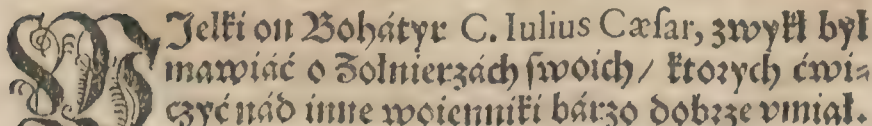 WJelki on Bohátyr C. Iulius Cæſar, zwykł był
mawiáć o Zołnierzách ſwoich / ktorych ćwi⸗
czyć nád inne woienniki bárzo dobrze vmiał.